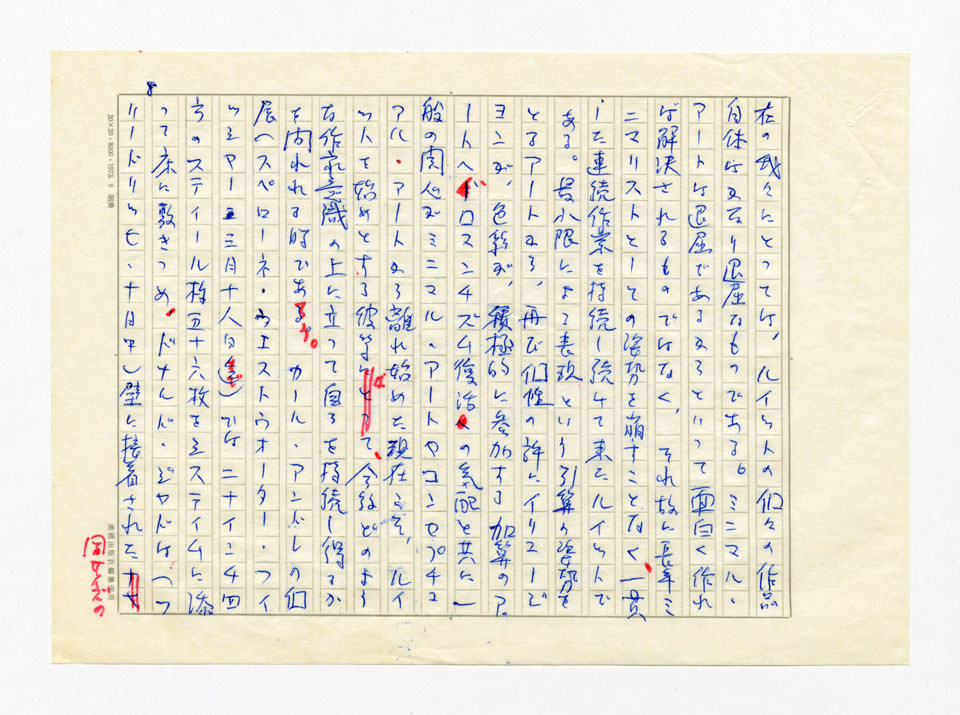 在の我々にとっては、ルイットの個々の作品
自体はかなり退屈なもつである。ミニマル・
アートは退屈であるからといって面白く作れ
ば解決されるものではなく、それ故に長年ミ
ニマリストとしての姿勢を崩すことなく、一貫
した連続作業を持続し続けて来たルイットで
ある。最小限による表現という引算の姿勢を
とるアートから、再び個性の許にイリュージ
ョンが、色彩が、積極的に参加する加算のア
ートへ、ロマンチズム復活への気配と共に一
般の関心がミニマル・アートやコンセプチュ
アル・アートから離れ始めた現在こそ、ルイ
ットを始めとする彼等が、今後どのよう
な作家意識の上に立って自らを持続し得るか
を問われる時であろう。カール・アンドレの個
展(スペローネ・ウエストウオーター・フイ
ッシャー 三月十八日まで)ではニナインチ四
方のスティール板五十六枚をミステイムに添
って床に敷きつめ、ドナルド・ジャッドは(
リードリッヒ、十日中)壁に接着された
8
20×20・8000・1973.
固めずの